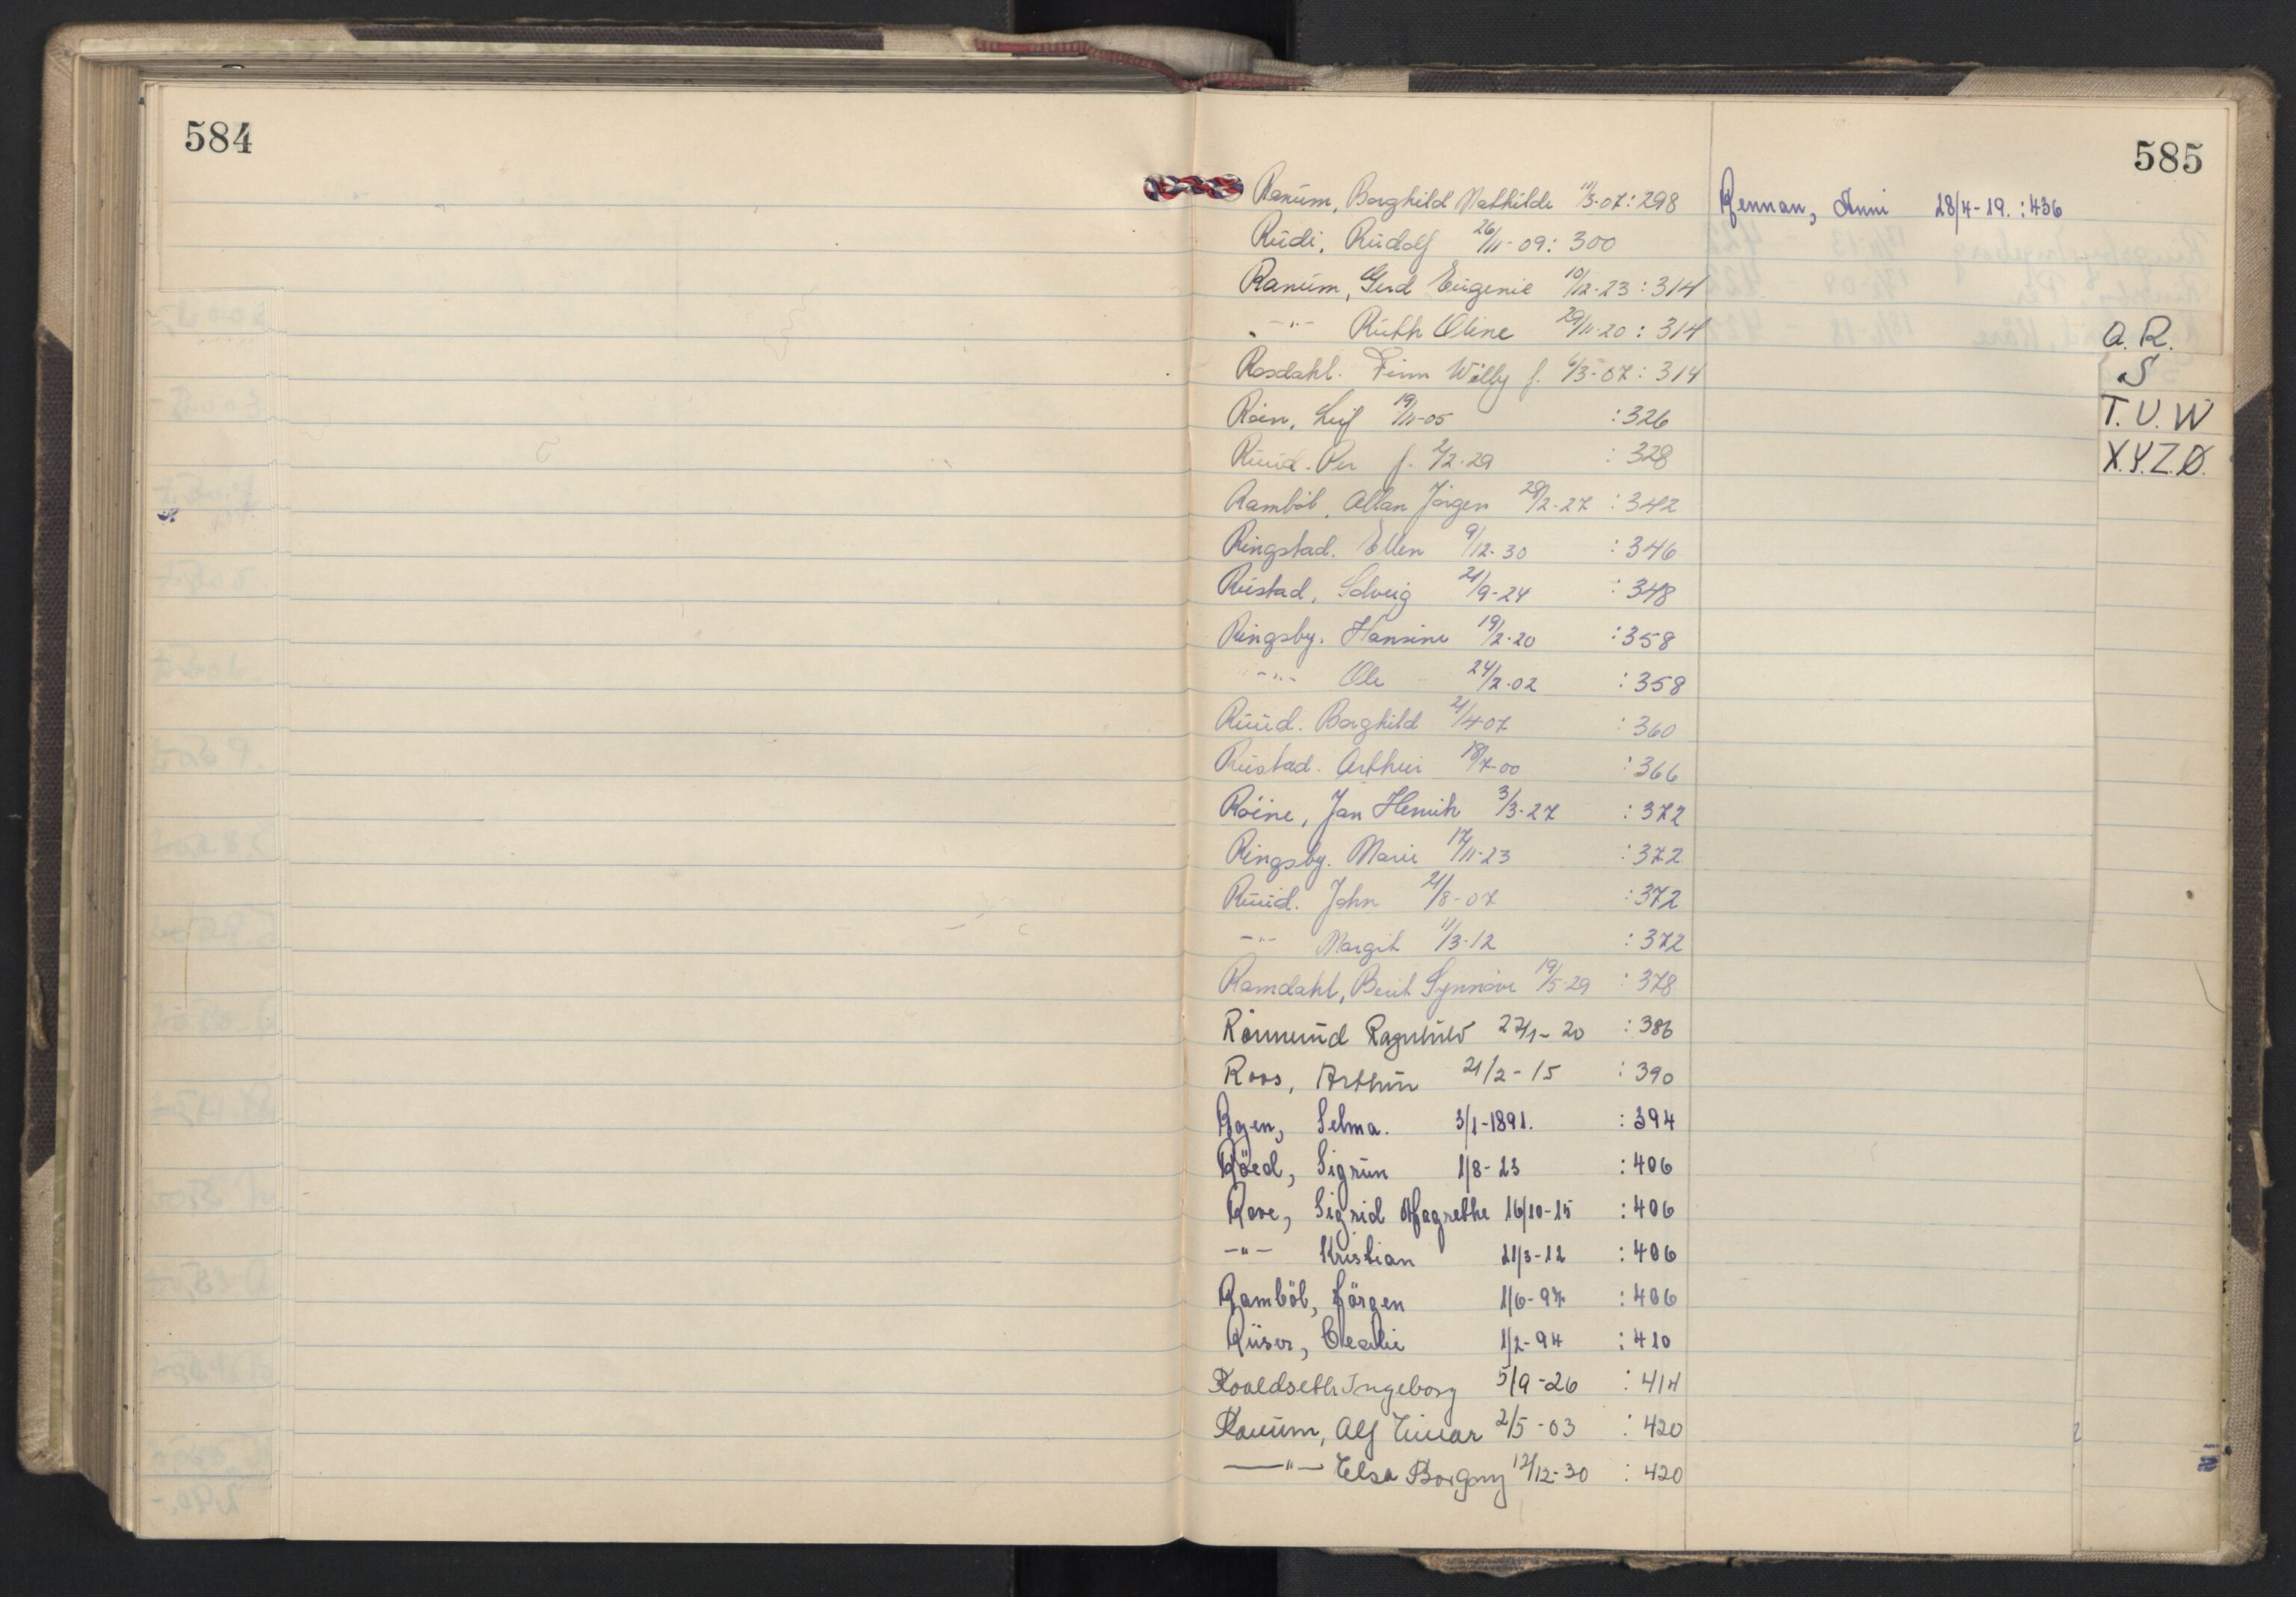 584
585
Ranum, Borghild Mathilde 11/3-07: 298
Rudi, Rudolf 26/11-09: 300
Ranum, Gerd Eugenie 10/12-23: 314
-"- Ruth Oline 29/11-20: 314
Rosdahl. Finn Willy f. 6/3-07: 314
Röen, Leif 19/11-05 : 326
Ruud. Per f. 2/2-29 : 328
Ramböl, Allan Jörgen 28/2-27 : 342
Ringstad. Ellen 9/12-30 : 346
Rustad, Solveig 21/9-24 : 348
Ringsby. Hansine 19/2-20 : 358
-"- Ole 24/2-02 : 358
Ruud. Borghild 21/4-07 : 360
Rustad. Arthur 18/7-00 : 366
Röine, Jan Henrik 3/3-27 : 372
Ringsby. Marie 17/11-23 : 372
Ruud. John 21/8-07 : 372
-"- Margit 11/3-12 : 372
Ramdahl, Berit Synnöve 19/5-29 : 378
Ragnhild 27/1-20 : 386
Roos, Arthur 21/2-15 : 390
Selma. 3/1-1891. : 394
Röed, Sigrun 1/8-23 : 406
Rove, Sigrid Magrethe 16/10-15 : 406
-"- Kristian 21/3-12 : 406
Ramböl, Jörgen 1/6-97 : 406
Riiser, Cecilie 1/2-94 : 410
Ingeborg 5/9-26 : 414
Ranum, Alf Einar 2/5-03 : 420
-"- Elsa Borgny 12/12-30 : 420
Rennan, Anni 28/4-19. : 436
Q. R.
S
T. U. W
X. Y. Z. Ø.